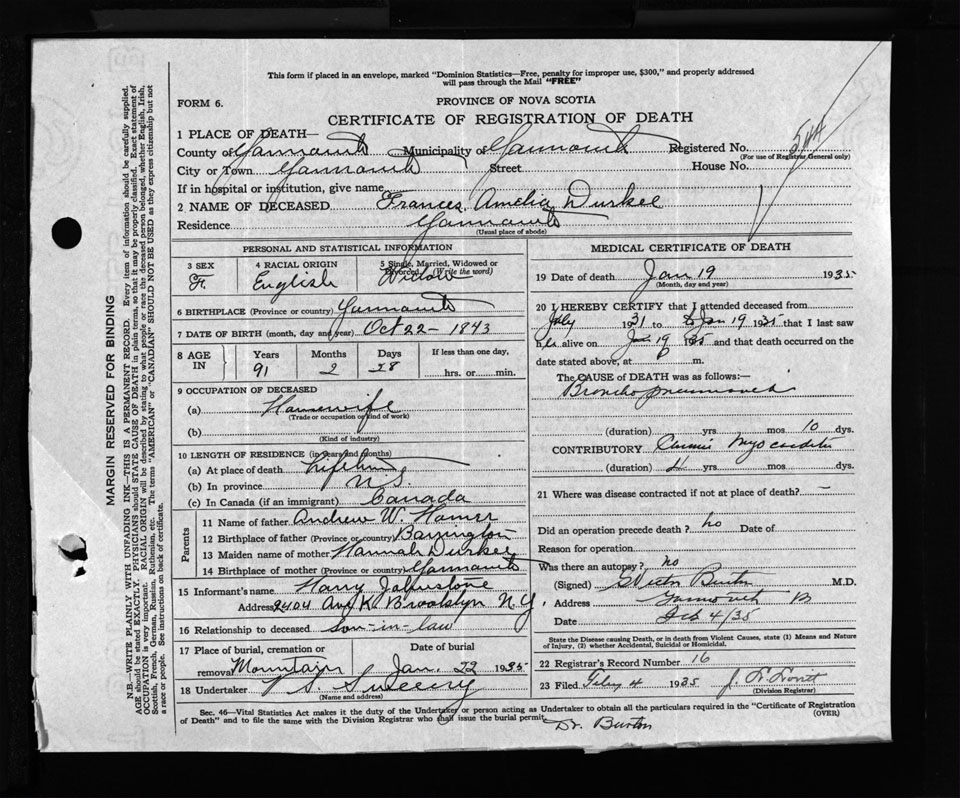 This form if placed in an envelope, marked "Dominion Statistics—Free, penalty for improper use, $300," and properly addressed
will pass through the Mail "FREE"
FORM 6.
PROVINCE OF NOVA SCOTIA
CERTIFICATE OF REGISTRATION OF DEATH
1 PLACE OF DEATH—
County of Yarmouth Municipality of Yarmouth Registered No.
(For use of Registrar General only)
City or Town Yarmouth Street House No.
If in hospital or institution, give name
2 NAME OF DECEASED Frances Amelia Durkee
Residence Yarmouth
(Usual place of abode)
PERSONAL AND STATISTICAL INFORMATION
3 SEX 4 RACIAL ORIGIN 5 Single, Married, Widowed or
Divorced (Write the word)
F. English Widow
6 BIRTHPLACE (Province or country) Yarmouth
7 DATE OF BIRTH (month, day and year) Oct 22 - 1843
8 AGE IN Years Months Days If less than one day,
91 2 28 hrs. or min.
9 OCCUPATION OF DECEASED
(a) Housewife
(Trade or occupation or kind of work)
(b)
(Kind of industry)
10 LENGTH OF RESIDENCE (in years and months)
(a) At place of death Lifetime
(b) In province N.S.
(c) In Canada (if an immigrant) Canada
Parents
11 Name of father Andrew W. Homer
12 Birthplace of father (Province or country) Barrington
13 Maiden name of mother Hannah Durkee
14 Birthplace of mother (Province or country) Yarmouth
15 Informant's name Harry Johnstone
Address 2404 Ave K. Brooklyn N.Y.
16 Relationship to deceased Son-in-law
17 Place of burial, cremation or Date of burial
removal Mountain Jan. 22 1935
18 Undertaker Sweeny
(Name and address)
MEDICAL CERTIFICATE OF DEATH
19 Date of death Jan 19 1935
(Month, day and year)
20 I HEREBY CERTIFY that I attended deceased from
July 1931 to Jan 19 1935 that I last saw
her alive on Jan 19 1935 and that death occurred on the
date stated above, at P m.
The CAUSE of DEATH was as follows:—
Broncho pneumonia
(duration) yrs. mos 10 dys.
CONTRIBUTORY Chronic Myocarditis
(duration) 4 yrs. mos. dys.
21 Where was disease contracted if not at place of death? —
Did an operation precede death? no Date of
Reason for operation
Was there an autopsy? no
(Signed) Burton M.D.
Address Yarmouth
Date Feb 4/35
State the Disease causing Death, or in death from Violent Causes, state (1) Means and Nature
of Injury, (2) whether Accidental, Suicidal or Homicidal.
22 Registrar's Record Number 16
23 Filed Feby 4 1935 J. L. Lovitt
(Division Registrar)
Sec. 46—Vital Statistics Act makes it the duty of the Undertaker or person acting as Undertaker to obtain all the particulars required in the "Certificate of Registration
of Death" and to file the same with the Division Registrar who shall issue the burial permit.
(OVER)
Dr. Burton
MARGIN RESERVED FOR BINDING
N.B.—WRITE PLAINLY WITH UNFADING INK—THIS IS A PERMANENT RECORD. Every item of information should be carefully supplied.
AGE should be stated EXACTLY. PHYSICIANS should STATE CAUSE OF DEATH in plain terms, so that it may be properly classified. Exact statement of
OCCUPATION is very important. RACIAL ORIGIN will be described by stating to what people or race the deceased person belonged, whether English, Irish,
Scottish, French, German, Russian, Ruthenian, etc. The terms "AMERICAN" or "CANADIAN" SHOULD NOT BE USED as they express citizenship but not
a race or people. See instructions on back of certificate.